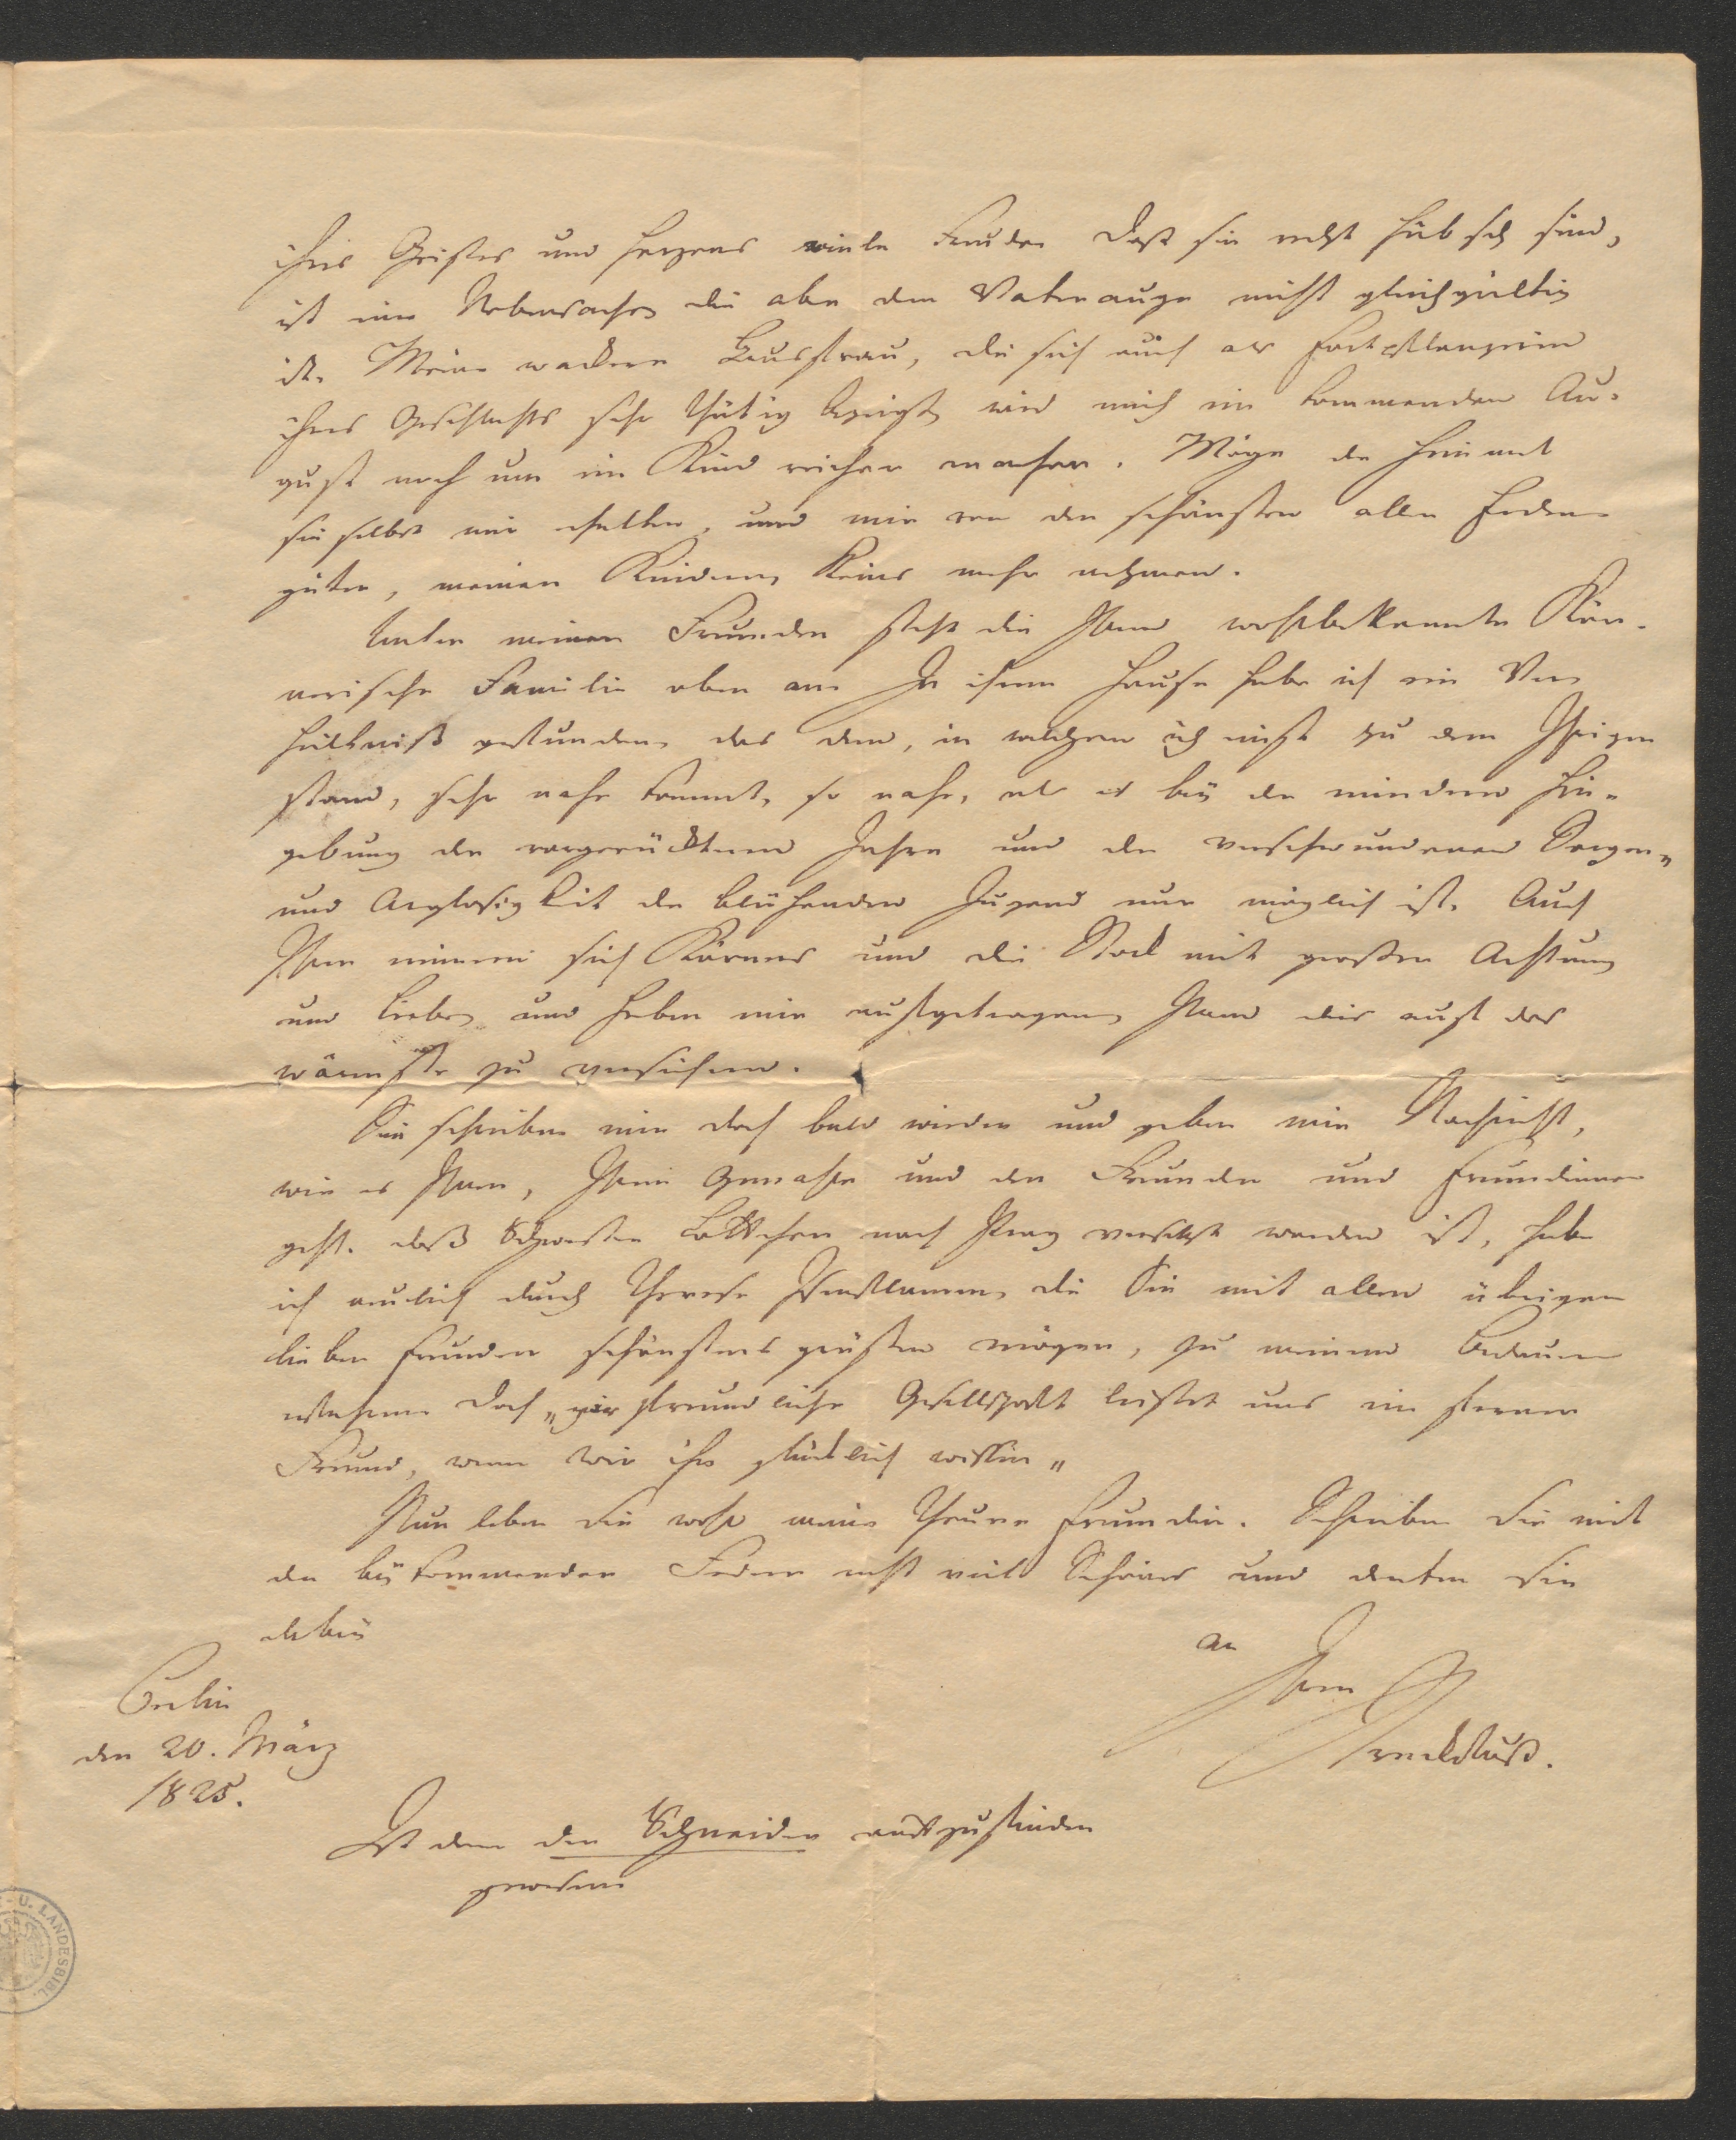 ihres Geistes und Herzens viele Freude. Daß sie recht hübsch sind,
ist eine Nebensache, die aber dem Vaterauge nicht gleichgültig
ist. Meine wackere Hausfrau, die sich auch als Fortpflanzerin
ihres Geschlechts sehr thätig bezeigt, wird mich im kommenden Au-
gust noch um ein Kind reicher machen. Möge der Himmel
sie selbst mir erhalten, und mir von den schönsten aller Erden-
güter, meinen Kindern, keins mehr nehmen.
Unter meinen Freunden steht die Ihnen wohlbekannte Kör-
nerische Familie oben an. In ihrem Hause habe ich ein Ver-
hältniß gefunden, das dem, in welchem ich einst zu dem Ihrigen
stand, sehr nahe kommt, so nahe, als es bey der mindern Hin-
gebung der vorgerücktern Jahre und der verschwundenen Sorgen-
und Arglosigkeit der blühenden Jugend nur möglich ist. Auch
Ihrer erinnern sich Körners und die Stock mit großer Achtung
und Liebe, und haben mir aufgetragen, Ihnen dies auf das
wärmste zu versichern.
Sie schreiben mir doch bald wieder und geben mir Nachricht,
wie es Ihnen, Ihrem Gemahle und den Freunden und Freundinnen
geht. Daß Schwester Lottchen nach Prag versetzt worden ist, habe
ich neulich durch Therese die Sie mit allen übrigen
lieben Freunden schönstens grüßen mögen, zu meinem Bedauern
erfahren. Doch „gar freundliche Gesellschaft leistet uns ein ferner
Freund, wenn wir ihn glücklich wissen„
Nun leben Sie wohl meine theure Freundin. Schreiben Sie mit
den beykommenden Federn recht viel Schönes und denken Sie
dabei
an
Ihren
Streckfuß.
Berlin
den 20. März
1825.
Ist denn der Schneider aufzufinden
gewesen
U. LANDESBIBL.